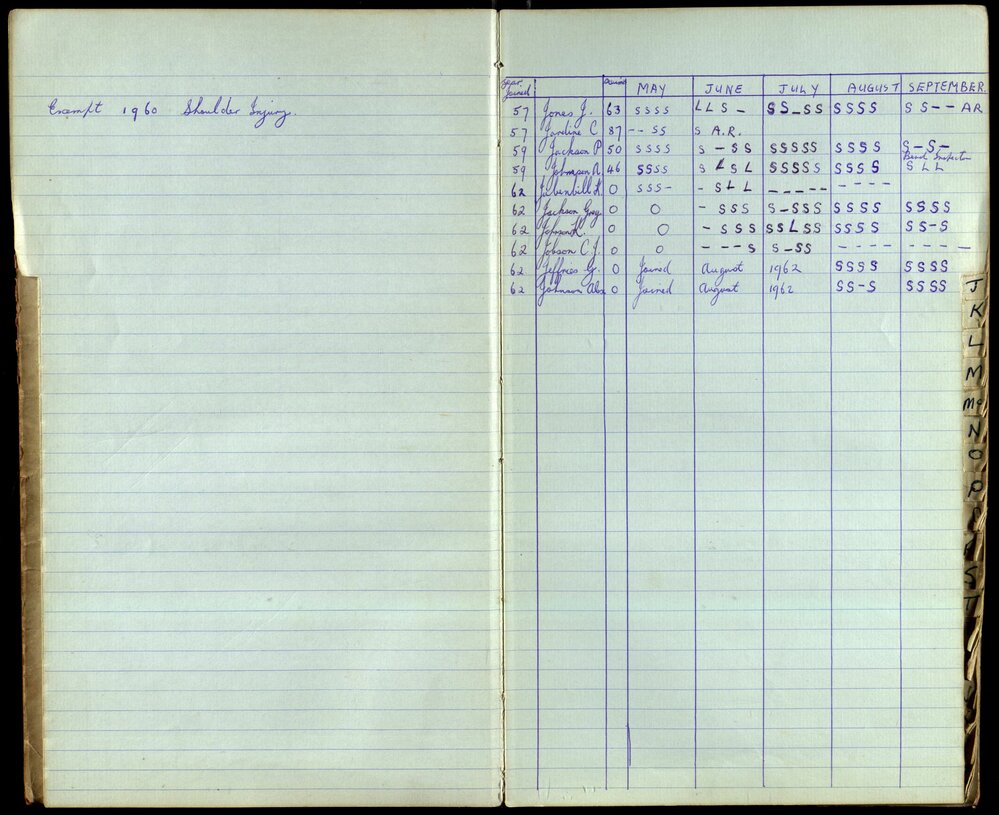 Exempt 1960 Shoulder Injury.
Year Joined MAY JUNE JULY AUGUST SEPTEMBER.
57 Jones J. 63 SSSS LLS- SS-SS SSSS SS--AR
57 Jardine C 87 --SS S A.R.
59 Jackson P 50 SSSS S-SS SSSSS SSSS S-S-
Band Inspection
59 Johnson R. 46 SSSS SLSL SSSSS SSSS SLL
62 0 SSS- -SLL ----- ----
62 Jackson Greg 0 0 -SSS S-SSS SSSS SSSS
62 Johnson K. 0 0 -SSS SSLSS SSSS SS-S
62 Jobson C.J. 0 0 ---S S-SS ---- ----
62 Jeffries G. 0 Joined August 1962 SSSS SSSS
62 Johnson Alex 0 Joined August 1962 SS-S SSSS
J
K
L
M
Mc
N
O
P
R
S
T